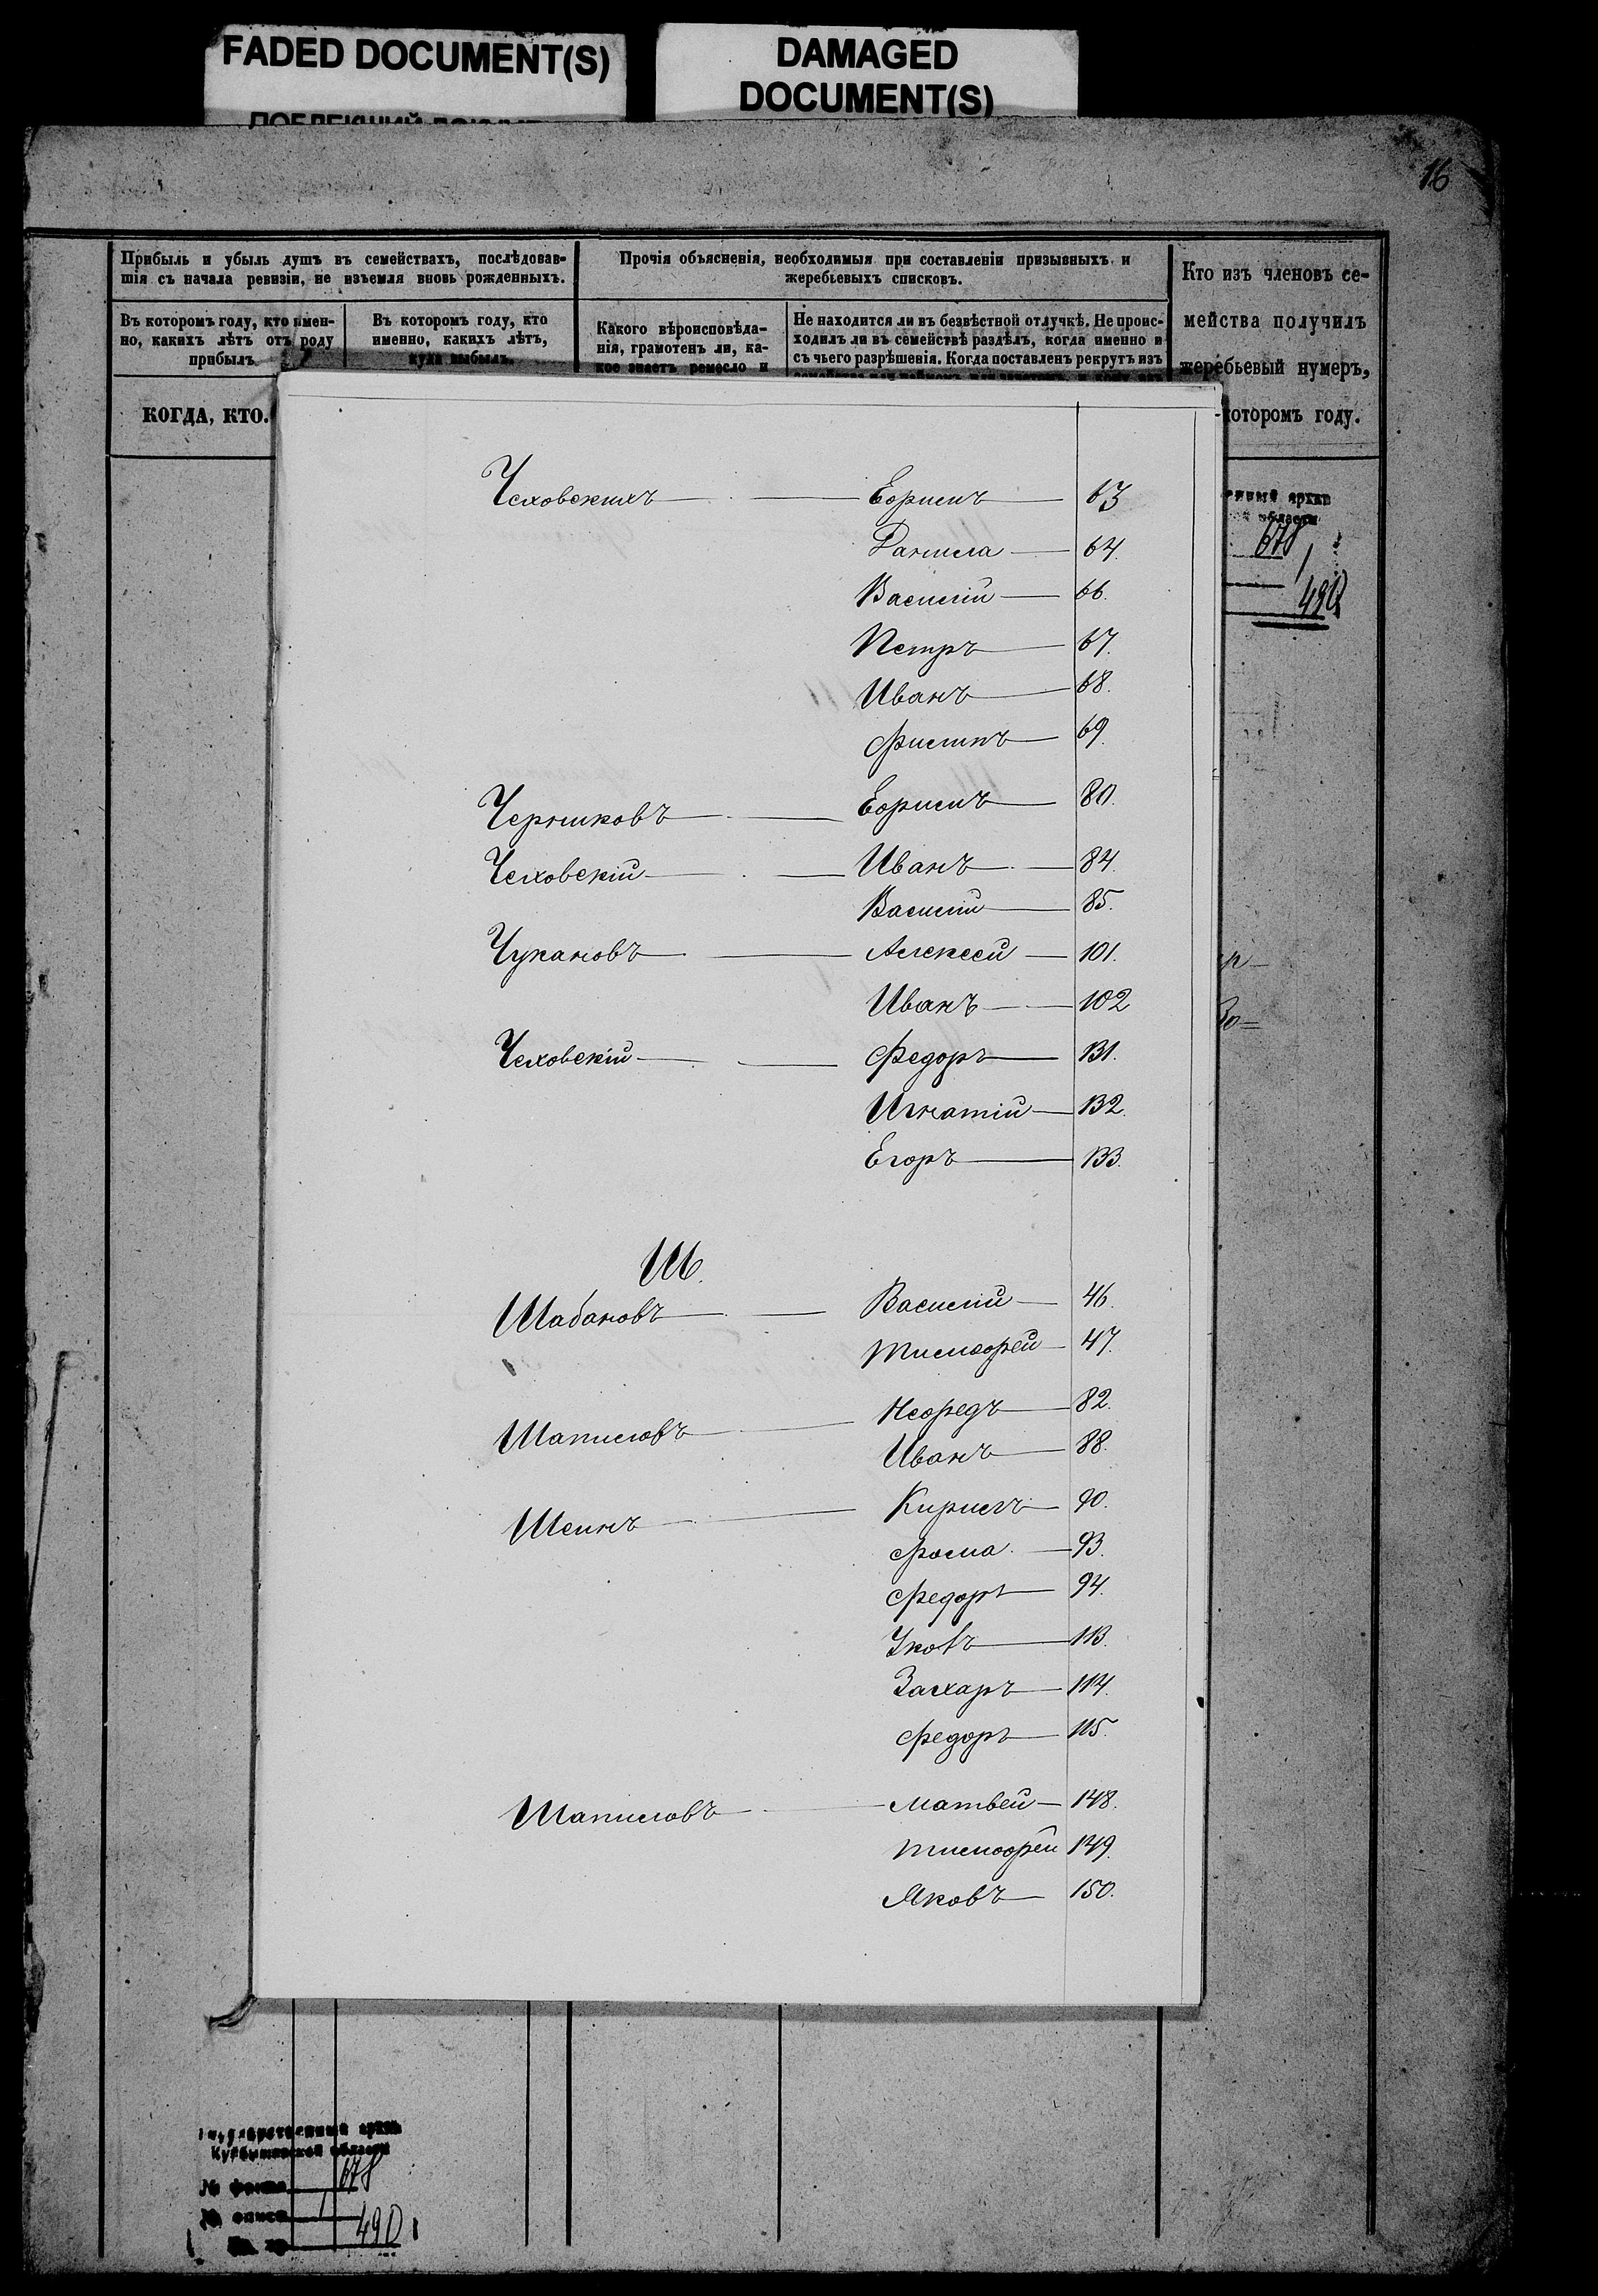 FADED DOCUMENT(S)
DAMAGED
DOCUMENT(S)
16
Прибыль и убыль душъ въ семействахъ, послѣдовав-
шія съ начала ревизіи, не изъемля вновь рожденныхъ.
Прочія объясненія, необходимыя при составленіи призывныхъ и
жеребьевыхъ списковъ.
Кто изъ членовъ се-
мейства получилъ
жеребьевый нумеръ,
которомъ году.
Въ которомъ году, кто имен-
но, какихъ лѣтъ отъ роду
прибылъ
Въ которомъ году, кто
именно, какихъ лѣтъ,
куда выбылъ.
Какого вѣроисповѣда-
нія, грамотенъ ли, ка-
кое знаетъ ремесло и
Не находится ли въ безвѣстной отлучкѣ. Не проис-
ходилъ ли въ семействѣ раздѣлъ, когда именно и
съ чьего разрѣшенія. Когда поставленъ рекрутъ изъ
КОГДА, КТО.
Чеховскихъ Ефимъ 63
Данила 64.
Василій 66.
Петръ 67.
Иванъ 68.
Филипъ 69.
Черниковъ Ефимъ 80.
Чеховскій Иванъ 84.
Василій 85.
Чукановъ Алексей 101.
Иванъ 102
Чеховскій Федоръ 131.
Игнатій 132.
Егоръ 133.
Ш.
Шабановъ Василій 46.
Тимофей 47.
Шапиловъ Нефедъ 82.
Иванъ 88.
Шеинъ Кирилъ 90.
Фома 93.
Федоръ 94.
Яковъ 113.
Захаръ 114.
Федоръ 115.
Шапиловъ Матвей 148.
Тимофей 149.
Яковъ 150.
архив
области
678
1
490
Государственный архив
Куйбышевской области
№ фонда 678
№ описи 1
490